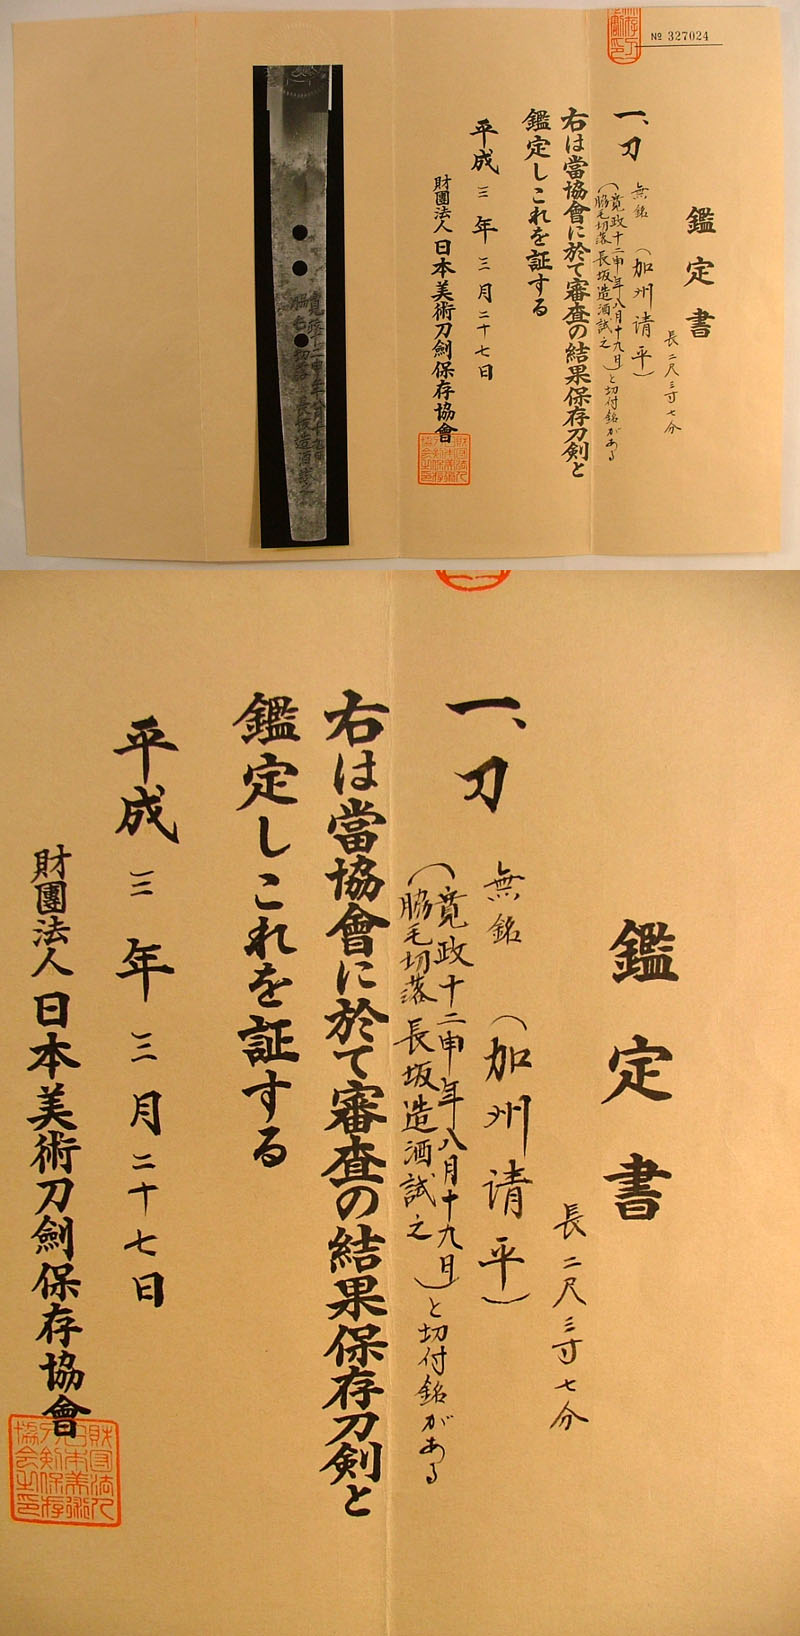 № 327024
鑑定書
長二尺三寸七分
一、刀 無銘 (加州清平)
(寛政十二申年八月十九日
脇毛切落 長坂造酒試之)と切付銘がある
右は當協會に於て審査の結果保存刀剣と
鑑定しこれを証する
平成三年三月二十七日
財團法人日本美術刀劍保存協會
寛政十二申年八月十九日
脇毛切落 長坂造酒試之
鑑定書
長二尺三寸七分
一、刀 無銘 (加州清平)
(寛政十二申年八月十九日
脇毛切落 長坂造酒試之)と切付銘がある
右は當協會に於て審査の結果保存刀剣と
鑑定しこれを証する
平成三年三月二十七日
財團法人日本美術刀劍保存協會